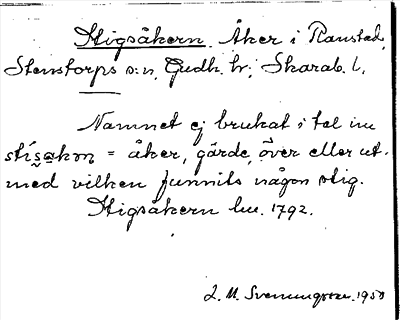 Stigsåkern. Åker i Ranstad,
Stenstorps s:n, Gudh. hr; Skarab. l.
Namnet ej brukat i tal nu
= åker, gärde, över eller ut-
med vilken funnits någon stig.
Stigsåkern hu. 1792.
L. M. Svenungsson. 1950